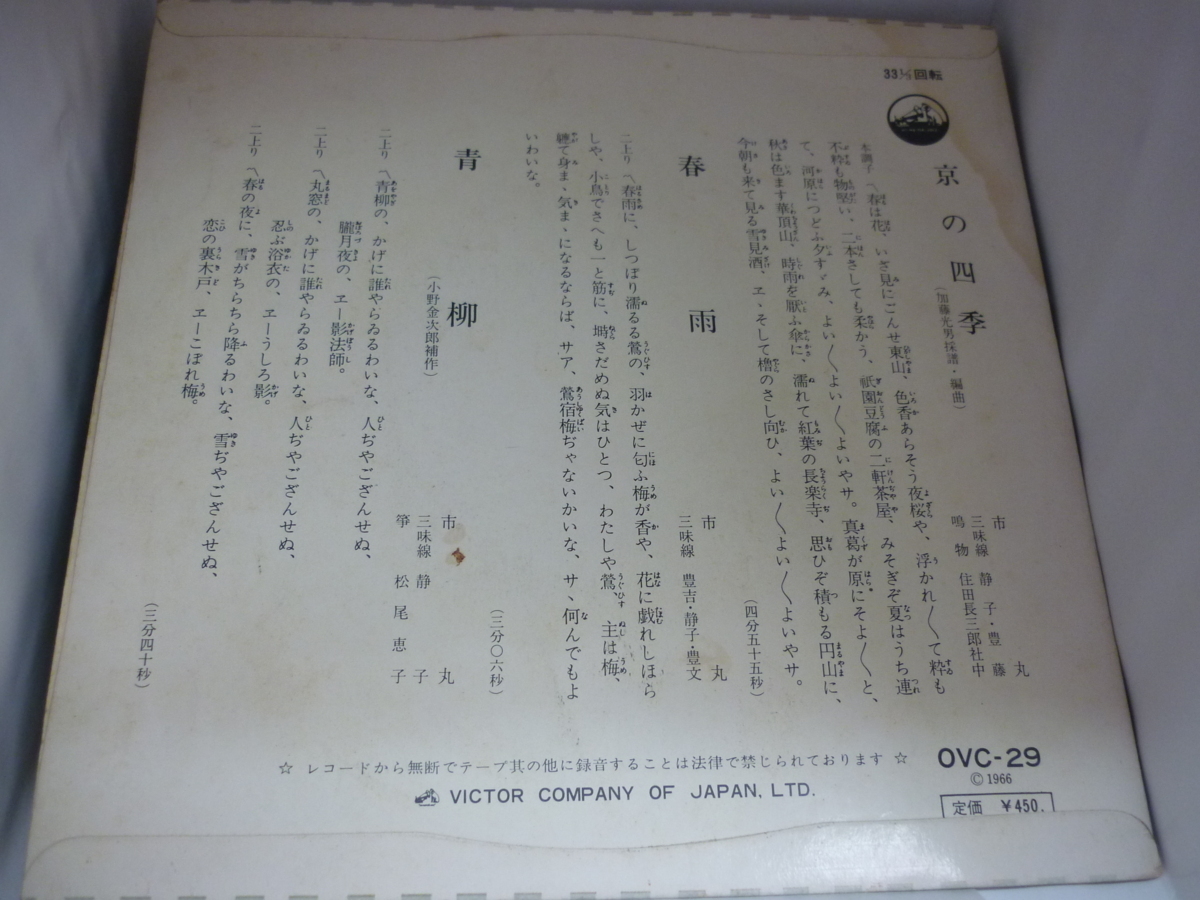 33⅓回転
京の四季
(加藤光男採譜・編曲)
市丸
三味線 静子・豊藤
鳴物 住田長三郎社中
本調子 〽春は花、いざ見にごんせ東山、色香あらそう夜桜や、浮かれ〳〵て粋も
不粋も物堅い、二本さしても柔かう、祇園豆腐の二軒茶屋、みそぎぞ夏はうち連
て、河原につどふ夕すゞみ、よい〳〵よい〳〵よいやサ。真葛が原にそよ〳〵と、
秋は色ます華頂山、時雨を厭ふ傘に、濡れて紅葉の長楽寺、思ひぞ積もる円山に、
今朝も来て見る雪見酒、ヱヽそして櫓のさし向ひ、よい〳〵よい〳〵よいやサ。
(四分五十五秒)
春雨
市丸
三味線 豊吉・静子・豊文
二上り 〽春雨に、しつぽり濡るる鶯の、羽かぜに匂ふ梅が香や、花に戯れしほら
しや、小鳥でさへも一と筋に、塒さだめぬ気はひとつ、わたしや鶯、主は梅、
纏て身まゝ気まゝになるならば、サア、鶯宿梅ぢゃないかいな、サヽ何んでもよ
いわいな。
(三分〇六秒)
青柳
(小野金次郎補作)
市丸
三味線 静子
箏 松尾恵子
二上り 〽青柳の、かげに誰やらゐるわいな、人ぢやござんせぬ、
朧月夜の、ヱー影法師。
二上り 〽丸窓の、かげに誰やらゐるわいな、人ぢやござんせぬ、
忍ぶ浴衣の、ヱーうしろ影。
二上り 〽春の夜に、雪がちらちら降るわいな、雪ぢやござんせぬ、
恋の裏木戸、ヱーこぼれ梅。
(三分四十秒)
☆ レコードから無断でテープ其の他に録音することは法律で禁じられております ☆
VICTOR COMPANY OF JAPAN, LTD.
OVC-29
Ⓒ 1966
定価 ¥450.